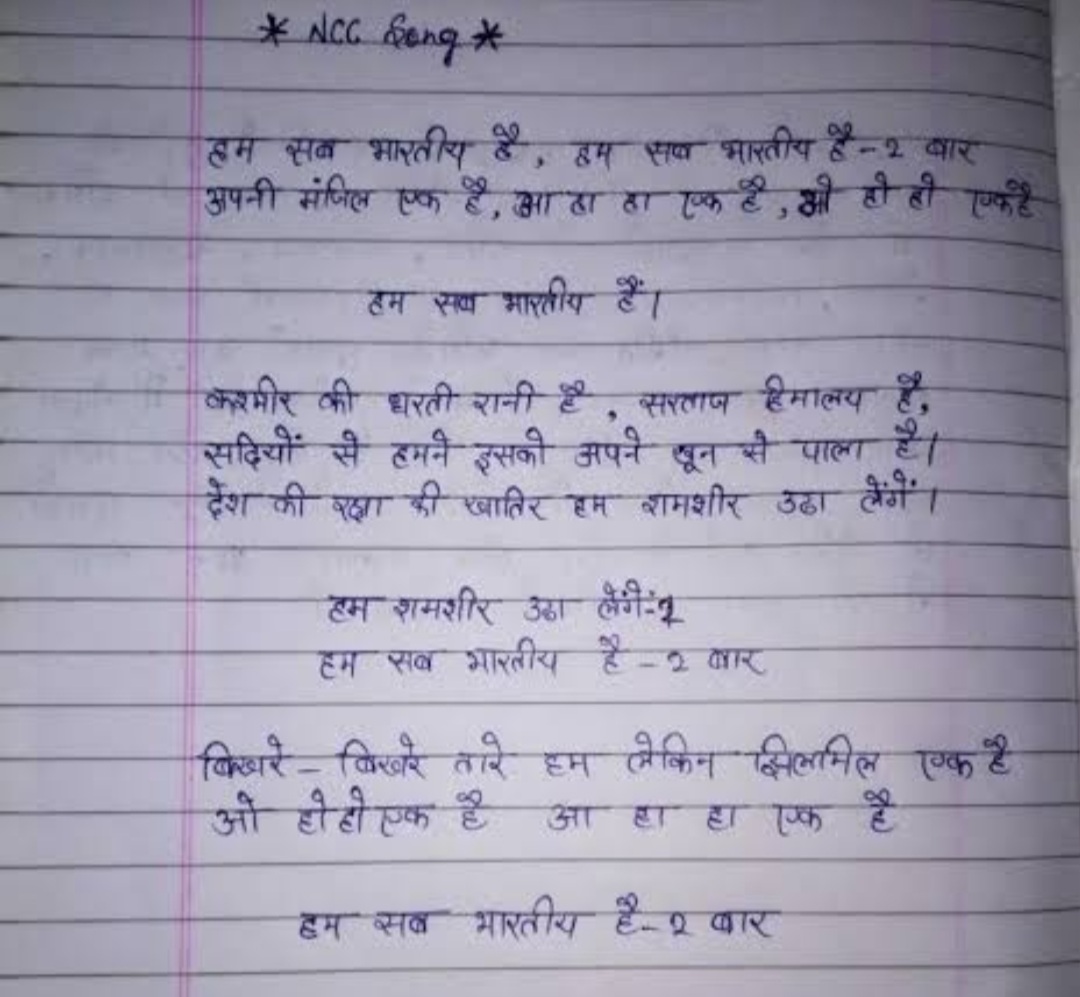 * NCC Song *
हम सब भारतीय है, हम सब भारतीय है - 2 बार
अपनी मंजिल एक है, आ हा हा एक है, ओ हो हो एक है
हम सब भारतीय हैं।
कश्मीर की धरती रानी है, सरताज हिमालय है,
सदियों से हमने इसको अपने खून से पाला है।
देश की रक्षा की खातिर हम शमशीर उठा लेंगें।
हम शमशीर उठा लेंगें-2
हम सब भारतीय है - 2 बार
बिखरे - बिखरे तारे हम लेकिन झिलमिल एक है
ओ हो हो एक है आ हा हा एक है
हम सब भारतीय है - 2 बार